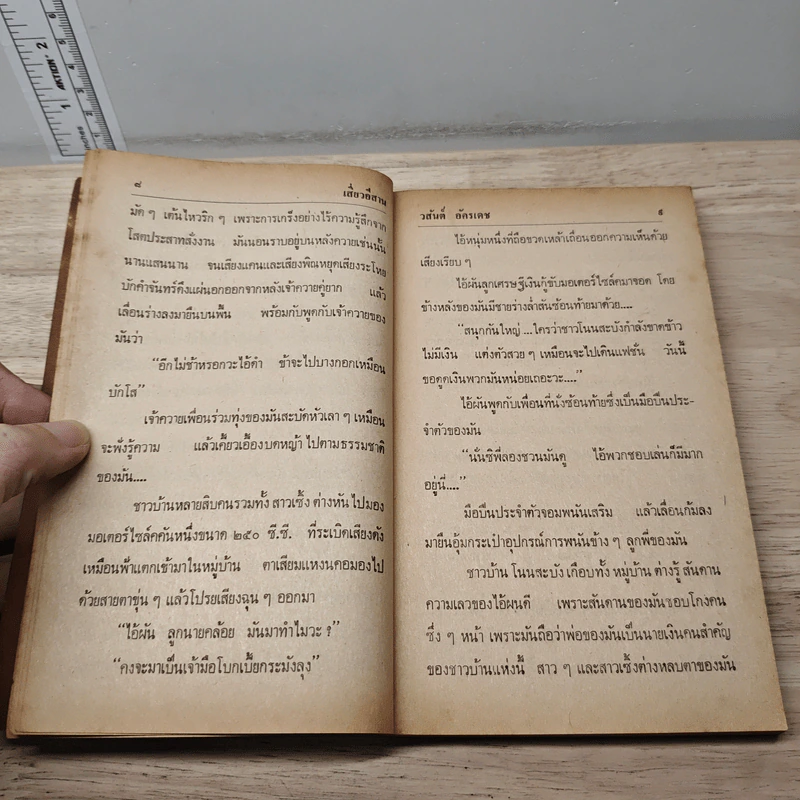 ๘ เสี่ยวอีสาน
มัด ๆ เต้นไหวริก ๆ เพราะการเกร็งอย่างไร้ความรู้สึกจาก
โสตประสาทสั่งงาน มันนอนราบอยู่บนหลังควายเช่นนั้น
นานแสนนาน จนเสียงแคนและเสียงพิณหยุดเสียงระโหย
บักคำจันทร์ดึงแผ่นอกออกจากหลังเจ้าควายคู่ยาก แล้ว
เลื่อนร่างลงมายืนบนพื้น พร้อมกับพูดกับเจ้าควายของ
มันว่า
“อีกไม่ช้าหรอกวะไอ้ดำ ข้าจะไปบางกอกเหมือน
บักโส”
เจ้าควายเพื่อนร่วมทุ่งของมันสะบัดหัวเลา ๆ เหมือน
จะพึ่งรู้ความ แล้วเคี้ยวเอื้องบดหญ้า ไปตามธรรมชาติ
ของมัน....
ชาวบ้านหลายสิบคนรวมทั้ง สาวเซิ้ง ต่างหัน ไปมอง
มอเตอร์ไซล์คคันหนึ่งขนาด ๒๕๐ ซี.ซี. ที่ระเบิดเสียงดัง
เหมือนฟ้าแตกเข้ามาในหมู่บ้าน ตาเสียมแหงนคอมองไป
ด้วยสายตาขุ่น ๆ แล้วโปรยเสียงฉุน ๆ ออกมา
“ไอ้ผัน ลูกนายคล้อย มันมาทำไมวะ ?”
“คงจะมาเป็นเจ้ามือโบกเบี้ยกระมังลุง”
วสันต์ อัครเดช ๙
ไอ้หนุ่มหนึ่งที่ถือขวดเหล้าเถื่อนออกความเห็นด้วย
เสียงเรียบ ๆ
ไอ้ผันลูกเศรษฐีเงินกู้ขับมอเตอร์ไซล์คมาจอด โดย
ข้างหลังของมันมีชายร่างล่ำสันซ้อนท้ายมาด้วย....
“สนุกกันใหญ่ ...ใครว่าชาวโนนสะบังกำลังขาดข้าว
ไม่มีเงิน แต่งตัวสวย ๆ เหมือนจะไปเดินแฟชั่น วันนี้
ขอดูดเงินพวกมันหน่อยเถอะวะ....”
ไอ้ผันพูดกับเพื่อนที่นั่งซ้อนท้ายซึ่งเป็นมือปืนประ-
จำตัวของมัน
“นั่นซิพี่ลองชวนมันดู ไอ้พวกชอบเล่นก็มีมาก
อยู่นี่....”
มือปืนประจำตัวจอมพนันเสริม แล้วเลื่อนก้มลง
มายืนอุ้มกระเป๋าอุปกรณ์การพนันข้าง ๆ ลูกพี่ของมัน
ชาวบ้าน โนนสะบัง เกือบทั้ง หมู่บ้าน ต่างรู้ สันดาน
ความเลวของไอ้ผันดี เพราะสันดานของมันชอบโกงคน
ซึ่ง ๆ หน้า เพราะมันถือว่าพ่อของมันเป็นนายเงินคนสำคัญ
ของชาวบ้านแห่งนี้ สาว ๆ และสาวเซิ้งต่างหลบตาของมัน
AKTION